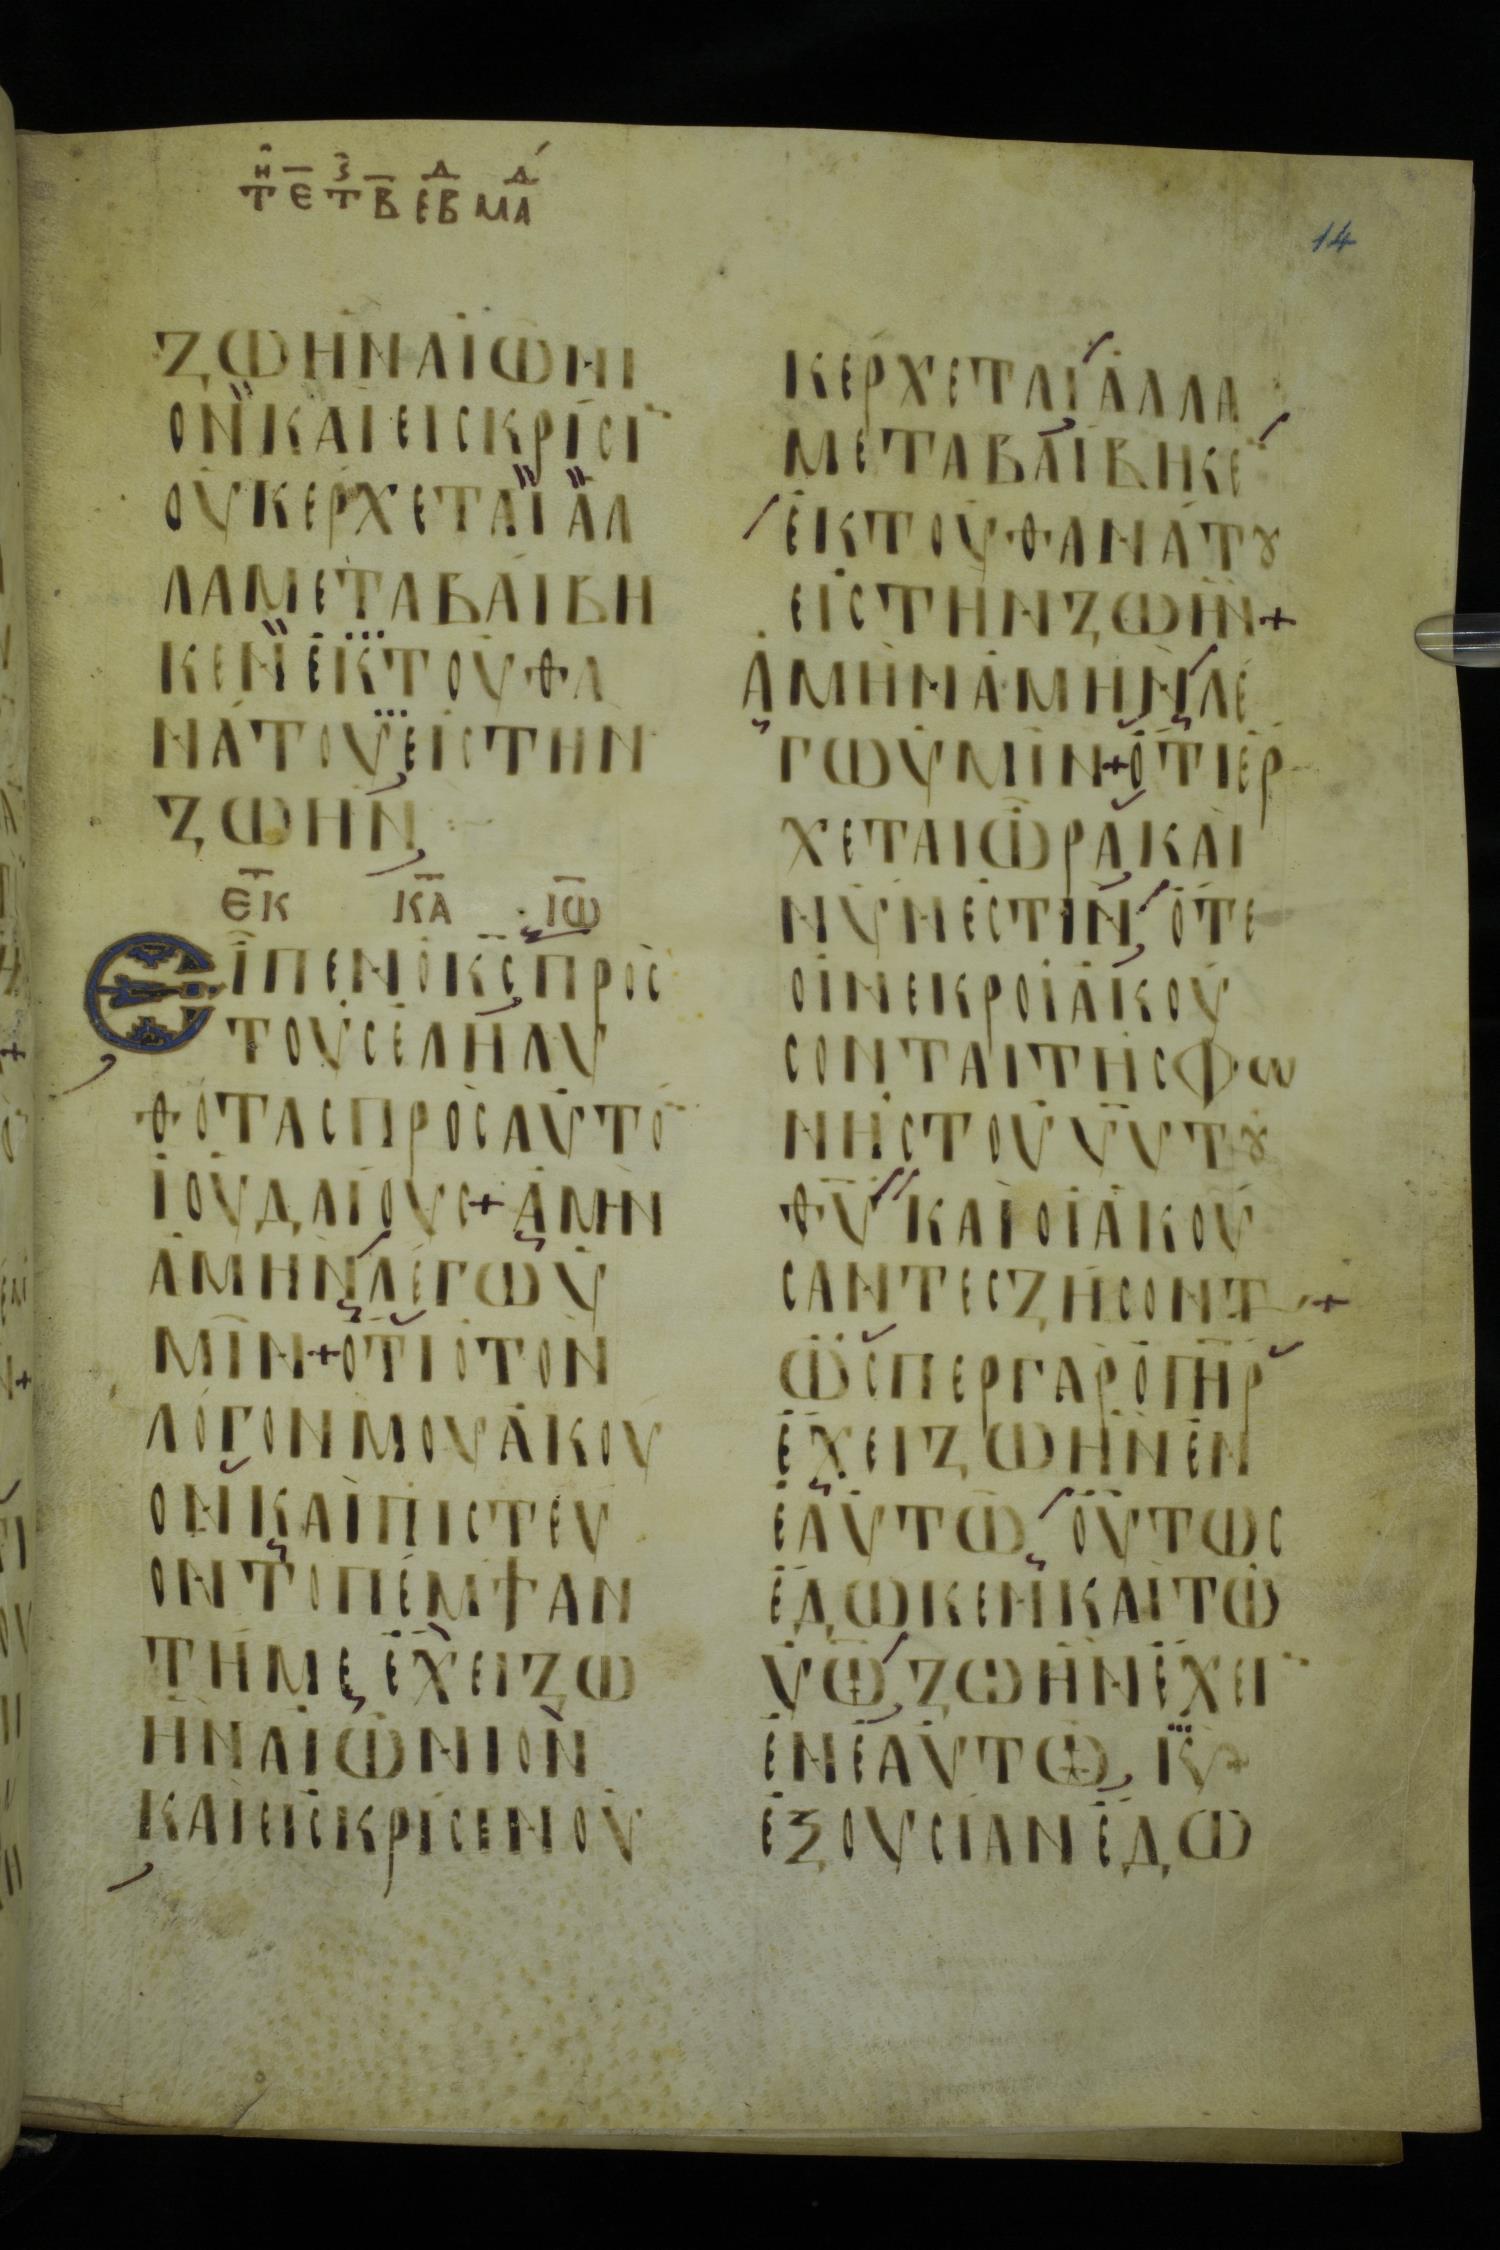 ΤΗ Ε ΤΖ Β ΕΒΔ ΜΑΔ
14
ΖΩΗΝΑΙΩΝΙ
ΟΝ ΚΑΙΕΙΣΚΡΙΣΙ
ΟΥΚΕΡΧΕΤΑΙ ΑΛ
ΛΑΜΕΤΑΒΑΙΒΗ
ΚΕΝ ΕΚΤΟΥΘΑ
ΝΑΤΟΥ ΕΙΣΤΗΝ
ΖΩΗΝ
ΕΚ ΚΑ ΙΩ
ΕΙΠΕΝΟΚΣΠΡΟΣ
ΤΟΥΣΕΛΗΛΥ
ΘΟΤΑΣΠΡΟΣΑΥΤΟ
ΙΟΥΔΑΙΟΥΣ+ΑΜΗΝ
ΑΜΗΝΛΕΓΩΥ
ΜΙΝ+ΟΤΙΟΤΟΝ
ΛΟΓΟΝΜΟΥΑΚΟΥ
ΟΝΚΑΙΠΙΣΤΕΥ
ΟΝΤΟΠΕΜΨΑΝ
ΤΗΜΕ ΕΧΕΙΖΩ
ΗΝΑΙΩΝΙΟΝ
ΚΑΙΕΙΣΚΡΙΣΕΝΟΥ
ΚΕΡΧΕΤΑΙ ΑΛΛΑ
ΜΕΤΑΒΑΙΒΗΚΕ
ΕΚΤΟΥΘΑΝΑΤȢ
ΕΙΣΤΗΝΖΩΗΝ+
ΑΜΗΝΑΜΗΝΛΕ
ΓΩΥΜΙΝ+ΟΤΙΕΡ
ΧΕΤΑΙΩΡΑΚΑΙ
ΝΥΝΕΣΤΙΝ ΟΤΕ
ΟΙΝΕΚΡΟΙΑΚΟΥ
ΣΟΝΤΑΙΤΗΣΦΩ
ΝΗΣΤΟΥΥΥΤȢ
ΘΥ ΚΑΙΟΙΑΚΟΥ
ΣΑΝΤΕΣΖΗΣΟΝΤ+
ΩΣΠΕΡΓΑΡΟΠΗΡ
ΕΧΕΙΖΩΗΝΕΝ
ΕΑΥΤΩ ΟΥΤΩΣ
ΕΔΩΚΕΝΚΑΙΤΩ
ΥΩ ΖΩΗΝΕΧΕΙ
ΕΝΕΑΥΤΩ Κ
ΕΞΟΥΣΙΑΝΕΔΩ